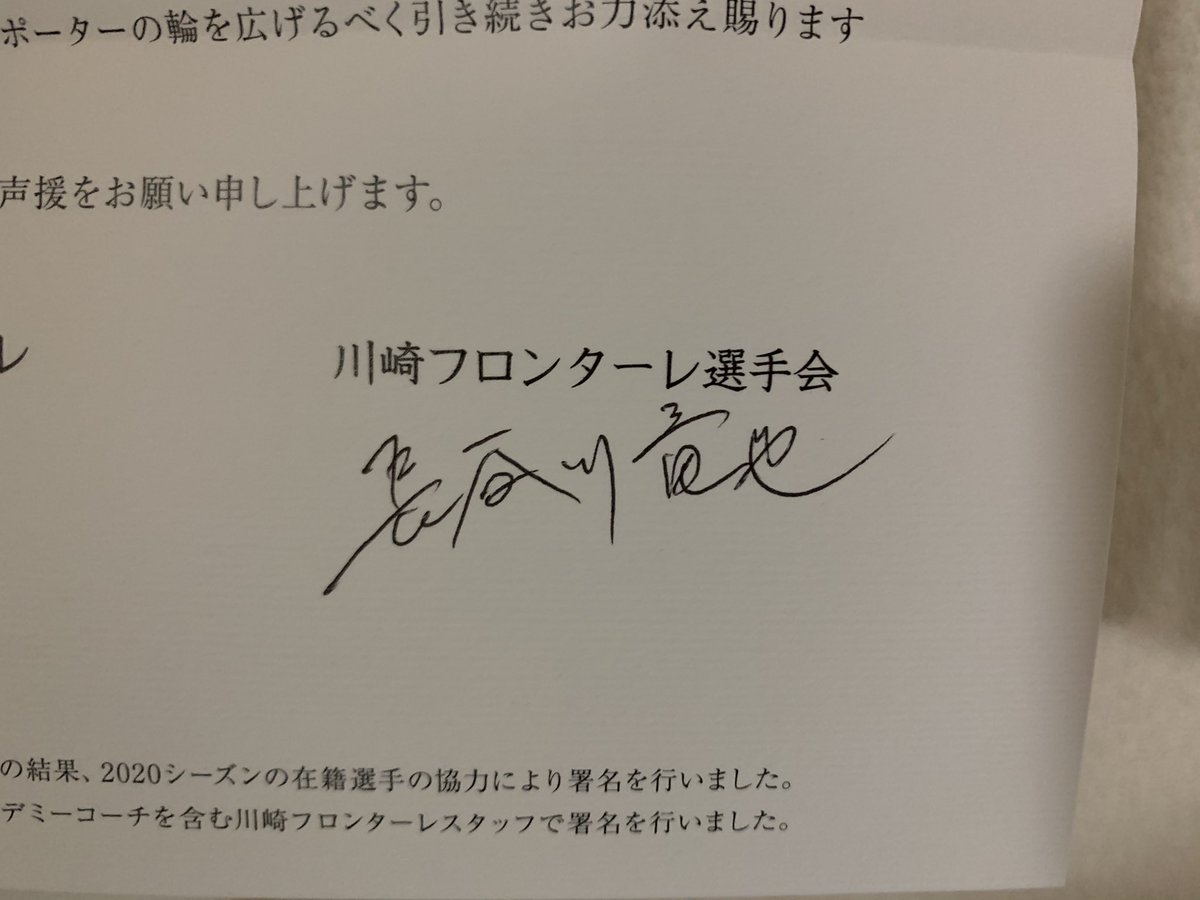 ポーターの輪を広げるべく引き続きお力添え賜ります
声援をお願い申し上げます。
レ
川崎フロンターレ選手会
長谷川竜也
の結果、2020シーズンの在籍選手の協力により署名を行いました。
デミーコーチを含む川崎フロンターレスタッフで署名を行いました。